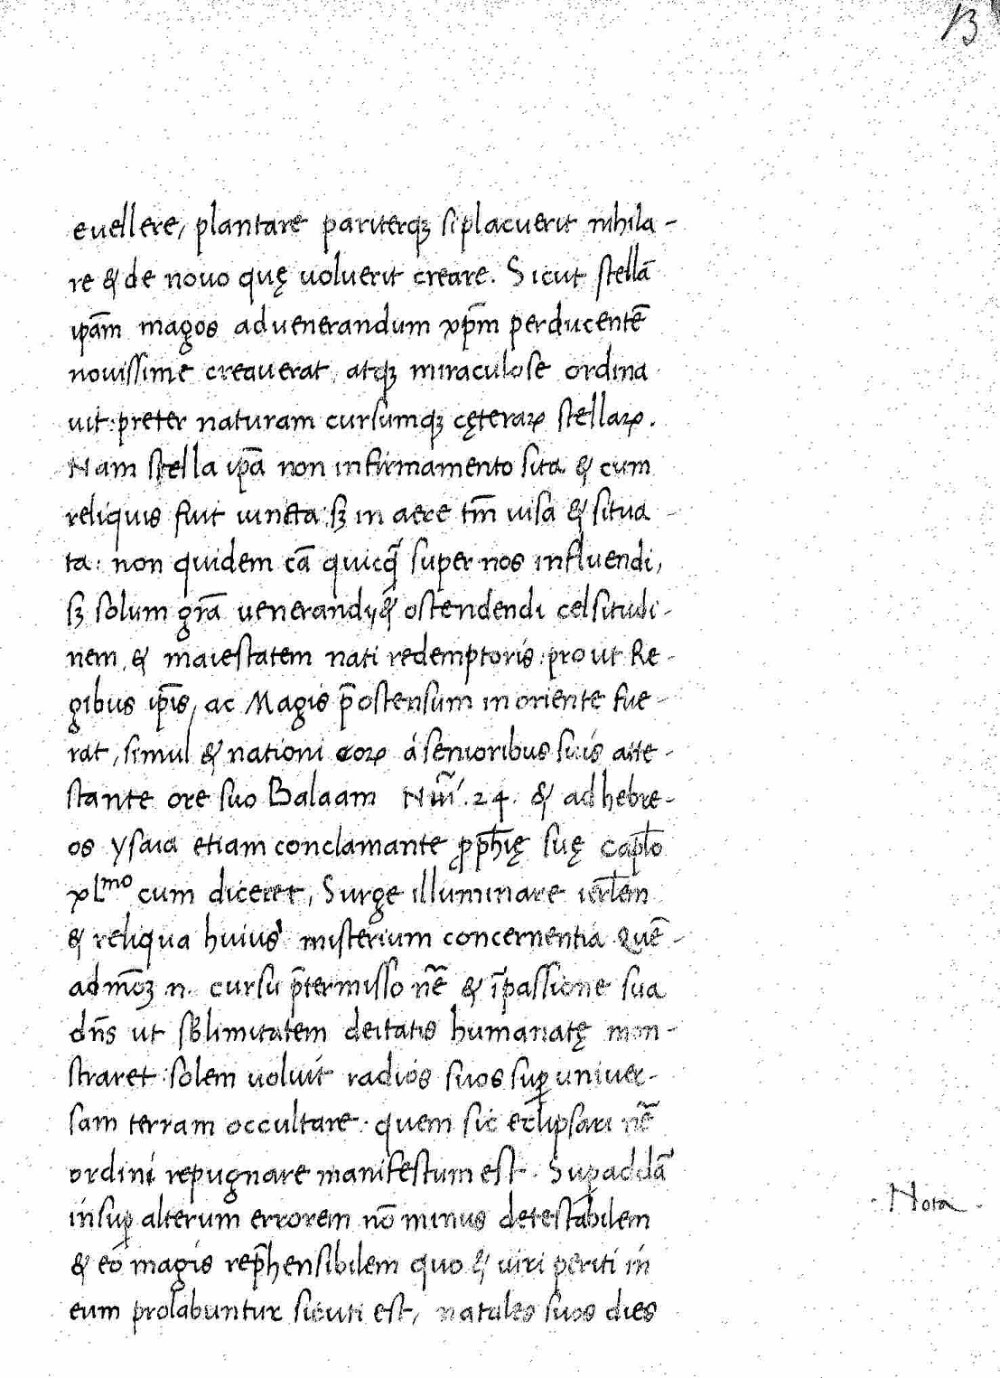 13
evellere, plantare pariterqꝫ si placuerit nihila-
re & de novo quę voluerit creare. Sicut stellā
ip̄am magos ad venerandum xp̄m perducentē
novissime creaverat, atqꝫ miraculose ordina
vit: preter naturam cursumqꝫ cęteraꝝ stellaꝝ.
Nam stella ip̄a non in firmamento sita & cum
reliquis fuit iuncta: sꝫ in aere tm̄ visa & situa-
ta: non quidem cā quicq̄ super nos influendi,
sꝫ solum grā venerandi, & ostendendi celsitudi-
nem, & maiestatem nati redemptoris: prout Re-
gibus ip̄is, ac Magis p̄ostensum in oriente fue-
rat, simul & nationi eoꝝ á senioribus suis atte-
stante ore suo Balaam Nūi. 24. & ad hebre-
os ysaia etiam conclamante ꝓph̄ię suę capl̄o
xl.mo cum diceret, Surge illuminare ierl̄em
& reliqua huius misterium concernentia Quē-
admōꝫ n. cursu p̄termisso nē & ī passione sua
dn̄s ut sblimitatem deitatis humanatę mon-
straret: solem voluit radios suos suꝑ univer-
sam terram occultare: quem sic eclipsari nē
ordini repugnare manifestum est. Supaddā
insuꝑ alterum errorem nō minus detestabilem
& eo magis rep̄hensibilem quo & viri periti in
eum prolabuntur sicuti est, natales suos dies
Nota.